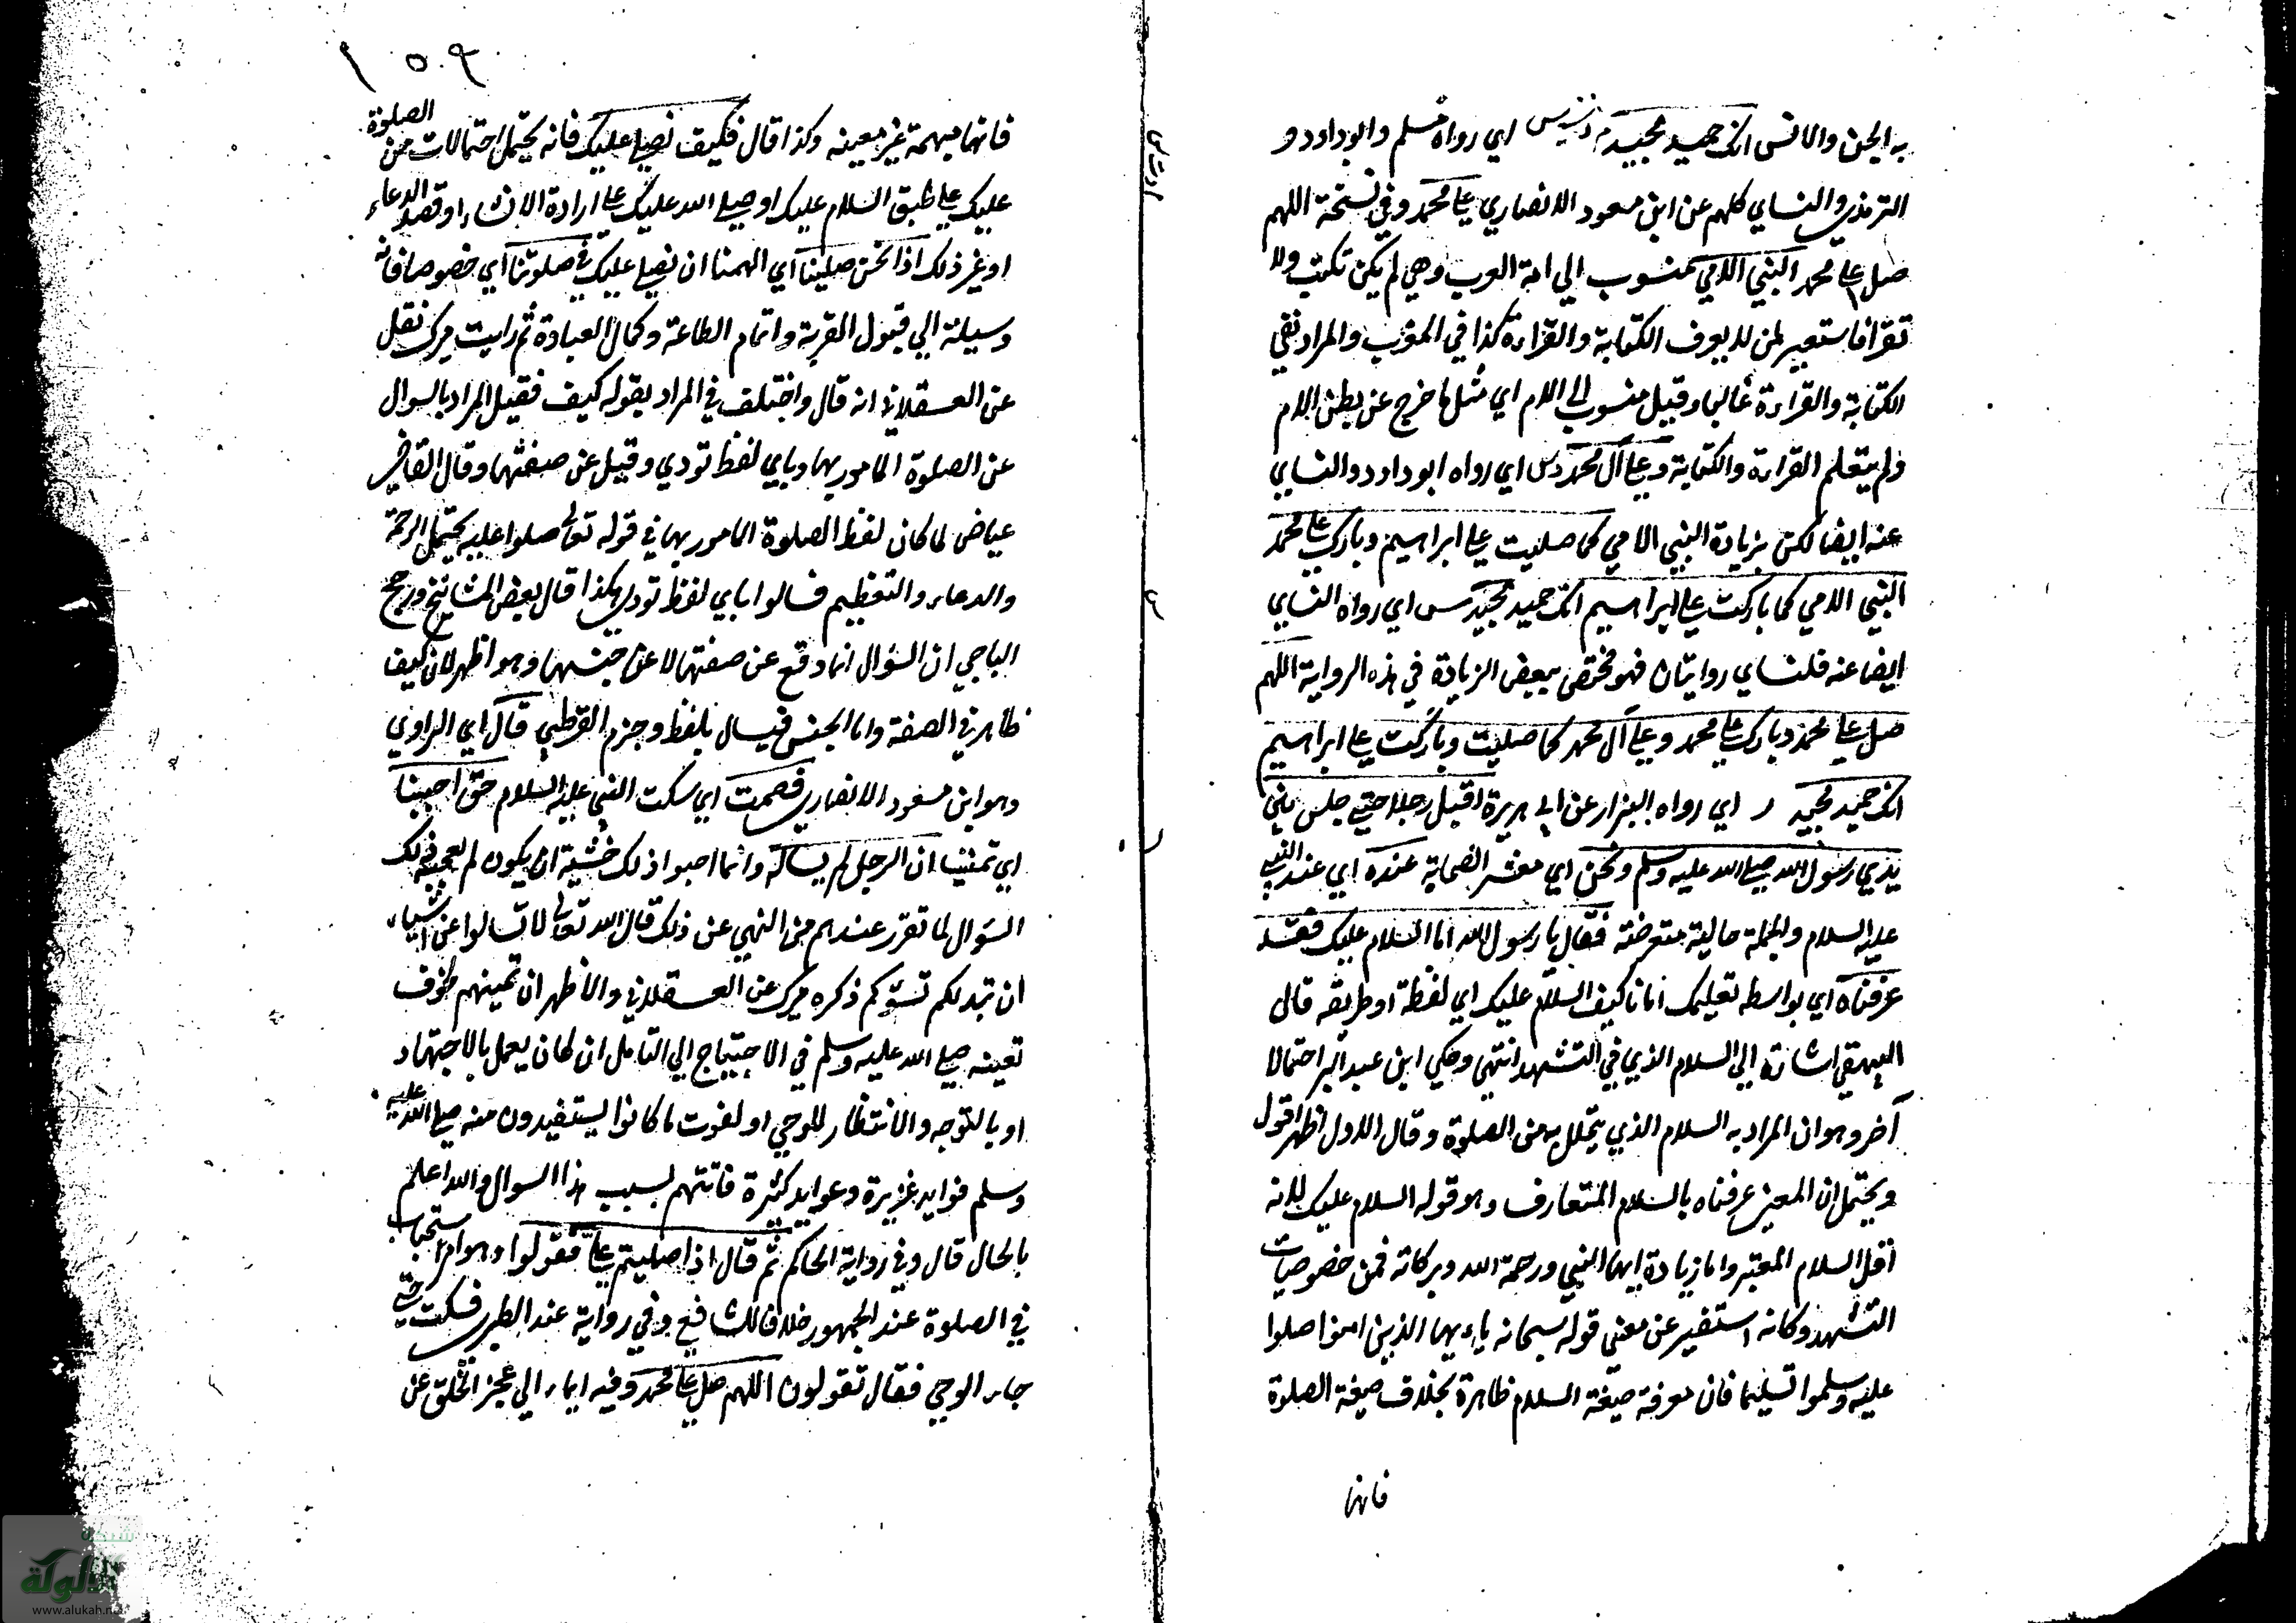 به الجن والانس انك حميد مجيد م د ت س اي رواه مسلم وابوداود و
الترمذي والنساي كلهم عن ابن مسعود الانصاري علي محمد وفي نسخة اللهم
صل علي محمد النبي الامي منسوب الي امة العرب وهي لم يكن تكتب ولا
تقرا فاستعير لمن لا يعرف الكتابة والقراءة كذا في المغرب والمراد نفي
الكتابة والقراءة غالبا وقيل منسوب الي الام اي مثل ما خرج عن بطن الام
ولم يتعلم القراءة والكتابة وعلي آل محمد د س اي رواه ابو داود والنساي
عنه ايضا لكن بزيادة النبي الامي كما صليت علي ابراهيم وبارك علي محمد
النبي الامي كما باركت علي ابراهيم انك حميد مجيد س اي رواه النساي
ايضا عنه فللنساي روايتان فهو مختص ببعض الزيادة في هذه الرواية اللهم
صل علي محمد وبارك علي محمد وعلي آل محمد كما صليت وباركت علي ابراهيم
انك حميد مجيد ر اي رواه البزار عن ابي هريرة اقبل رجل حتي جلس بين
يدي رسول الله صلي الله عليه وسلم ونحن اي معشر الصحابة عنده اي عند النبي
عليه السلام والجملة حالية معترضة فقال يا رسول الله اما السلام عليك فقد
عرفناه اي بواسطه تعليمك ايانا كيف السلام عليك اي لفظة او طريقه قال
البيهقي اشارة الي السلام الذي في التشهد انتهي وحكي ابن عبد البر احتمالا
آخر وهو ان المراد به السلام الذي يتحلل به من الصلوة وقال الاول اظهر اقول
ويحتمل ان المعني عرفناه بالسلام المتعارف وهو قوله السلام عليك لانه
اقل السلام المعتبر واما زيادة ايها النبي ورحمة الله وبركاته فمن خصوصيات
التشهد وكانه استفسر عن معني قوله سبحانه ياءيها الذين امنوا صلوا
عليه وسلموا تسليما فان معرفة صيغة السلام ظاهرة بخلاف صيغة الصلوة
فانها
١٥٩
فانها مبهمة غير معينه وكذا قال فكيف نصلي عليك فانه يحتمل احتمالات من الصلوة
عليك علي طبق السلام عليك او صلي الله عليك علي ارادة الانشاء او قصد الدعاء
او غير ذلك اذا نحن صلينا اي الهمنا ان نصلي عليك في صلوتنا اي خصوصا فانه
وسيلة الي قبول القربة واتمام الطاعة وكمال العبادة ثم رايت ميرك نقل
عن العسقلاني انه قال واختلف في المراد بقوله كيف فقيل المراد بالسوال
عن الصلوة المامور بها وباي لفظ تودي وقيل عن صفتها وقال القاضي
عياض لما كان لفظ الصلوة المامور بها في قوله تعالي صلوا عليه يحتمل الرحمة
والدعاء والتعظيم فسالوا باي لفظ تودي هكذا قال بعض المشائخ ورجح
الباجي ان السؤال انما وقع عن صفتها لا عن جنسها وهو اظهر لان كيف
ظاهر في الصفة واما الجنس فيسال بلفظ وجزم القرطبي قال اي الراوي
وهو ابن مسعود الانصاري فصمت اي سكت النبي عليه السلام حتي احببنا
اي تمنينا ان الرجل لم يساله وانما احبوا ذلك خشية ان يكون لم يعجبه ذلك
السؤال لما تقرر عندهم من النهي عن ذلك قال الله تعالي لا تسالوا عن اشياء
ان تبد لكم تسؤكم ذكره ميرك عن العسقلاني والاظهر ان تمنيهم لخوف
تعبه صلي الله عليه وسلم في الاحتياج الي التامل ان كان يعمل بالاجتهاد
او بالتوجه والانتظار للوحي او لفوت ما كانوا يستفيدون منه صلي الله عليه
وسلم فوايد غزيرة وعوايد كثيرة فاتتهم بسبب هذا السوال والله اعلم
بالحال قال وفي رواية الحاكم ثم قال اذا صليتم علي فقولوا وهو امر استحباب
في الصلوة عند الجمهور خلافا للشافعي وفي رواية عند الطبري فسكت حتي
جاء الوحي فقال تقولون اللهم صل علي محمد وفيه ايماء الي عجز الخلق عن
شبكة
الألوكة
www.alukah.net